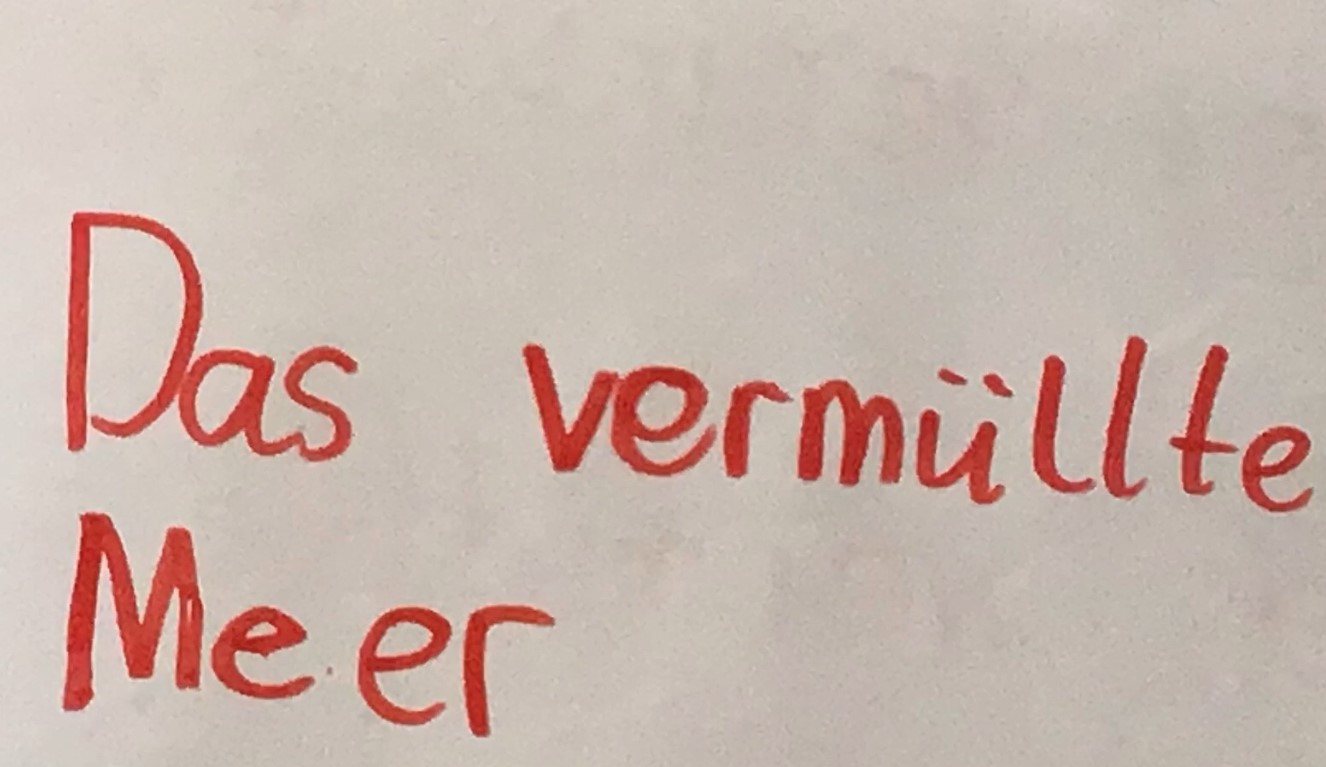 Das vermüllte
Meer